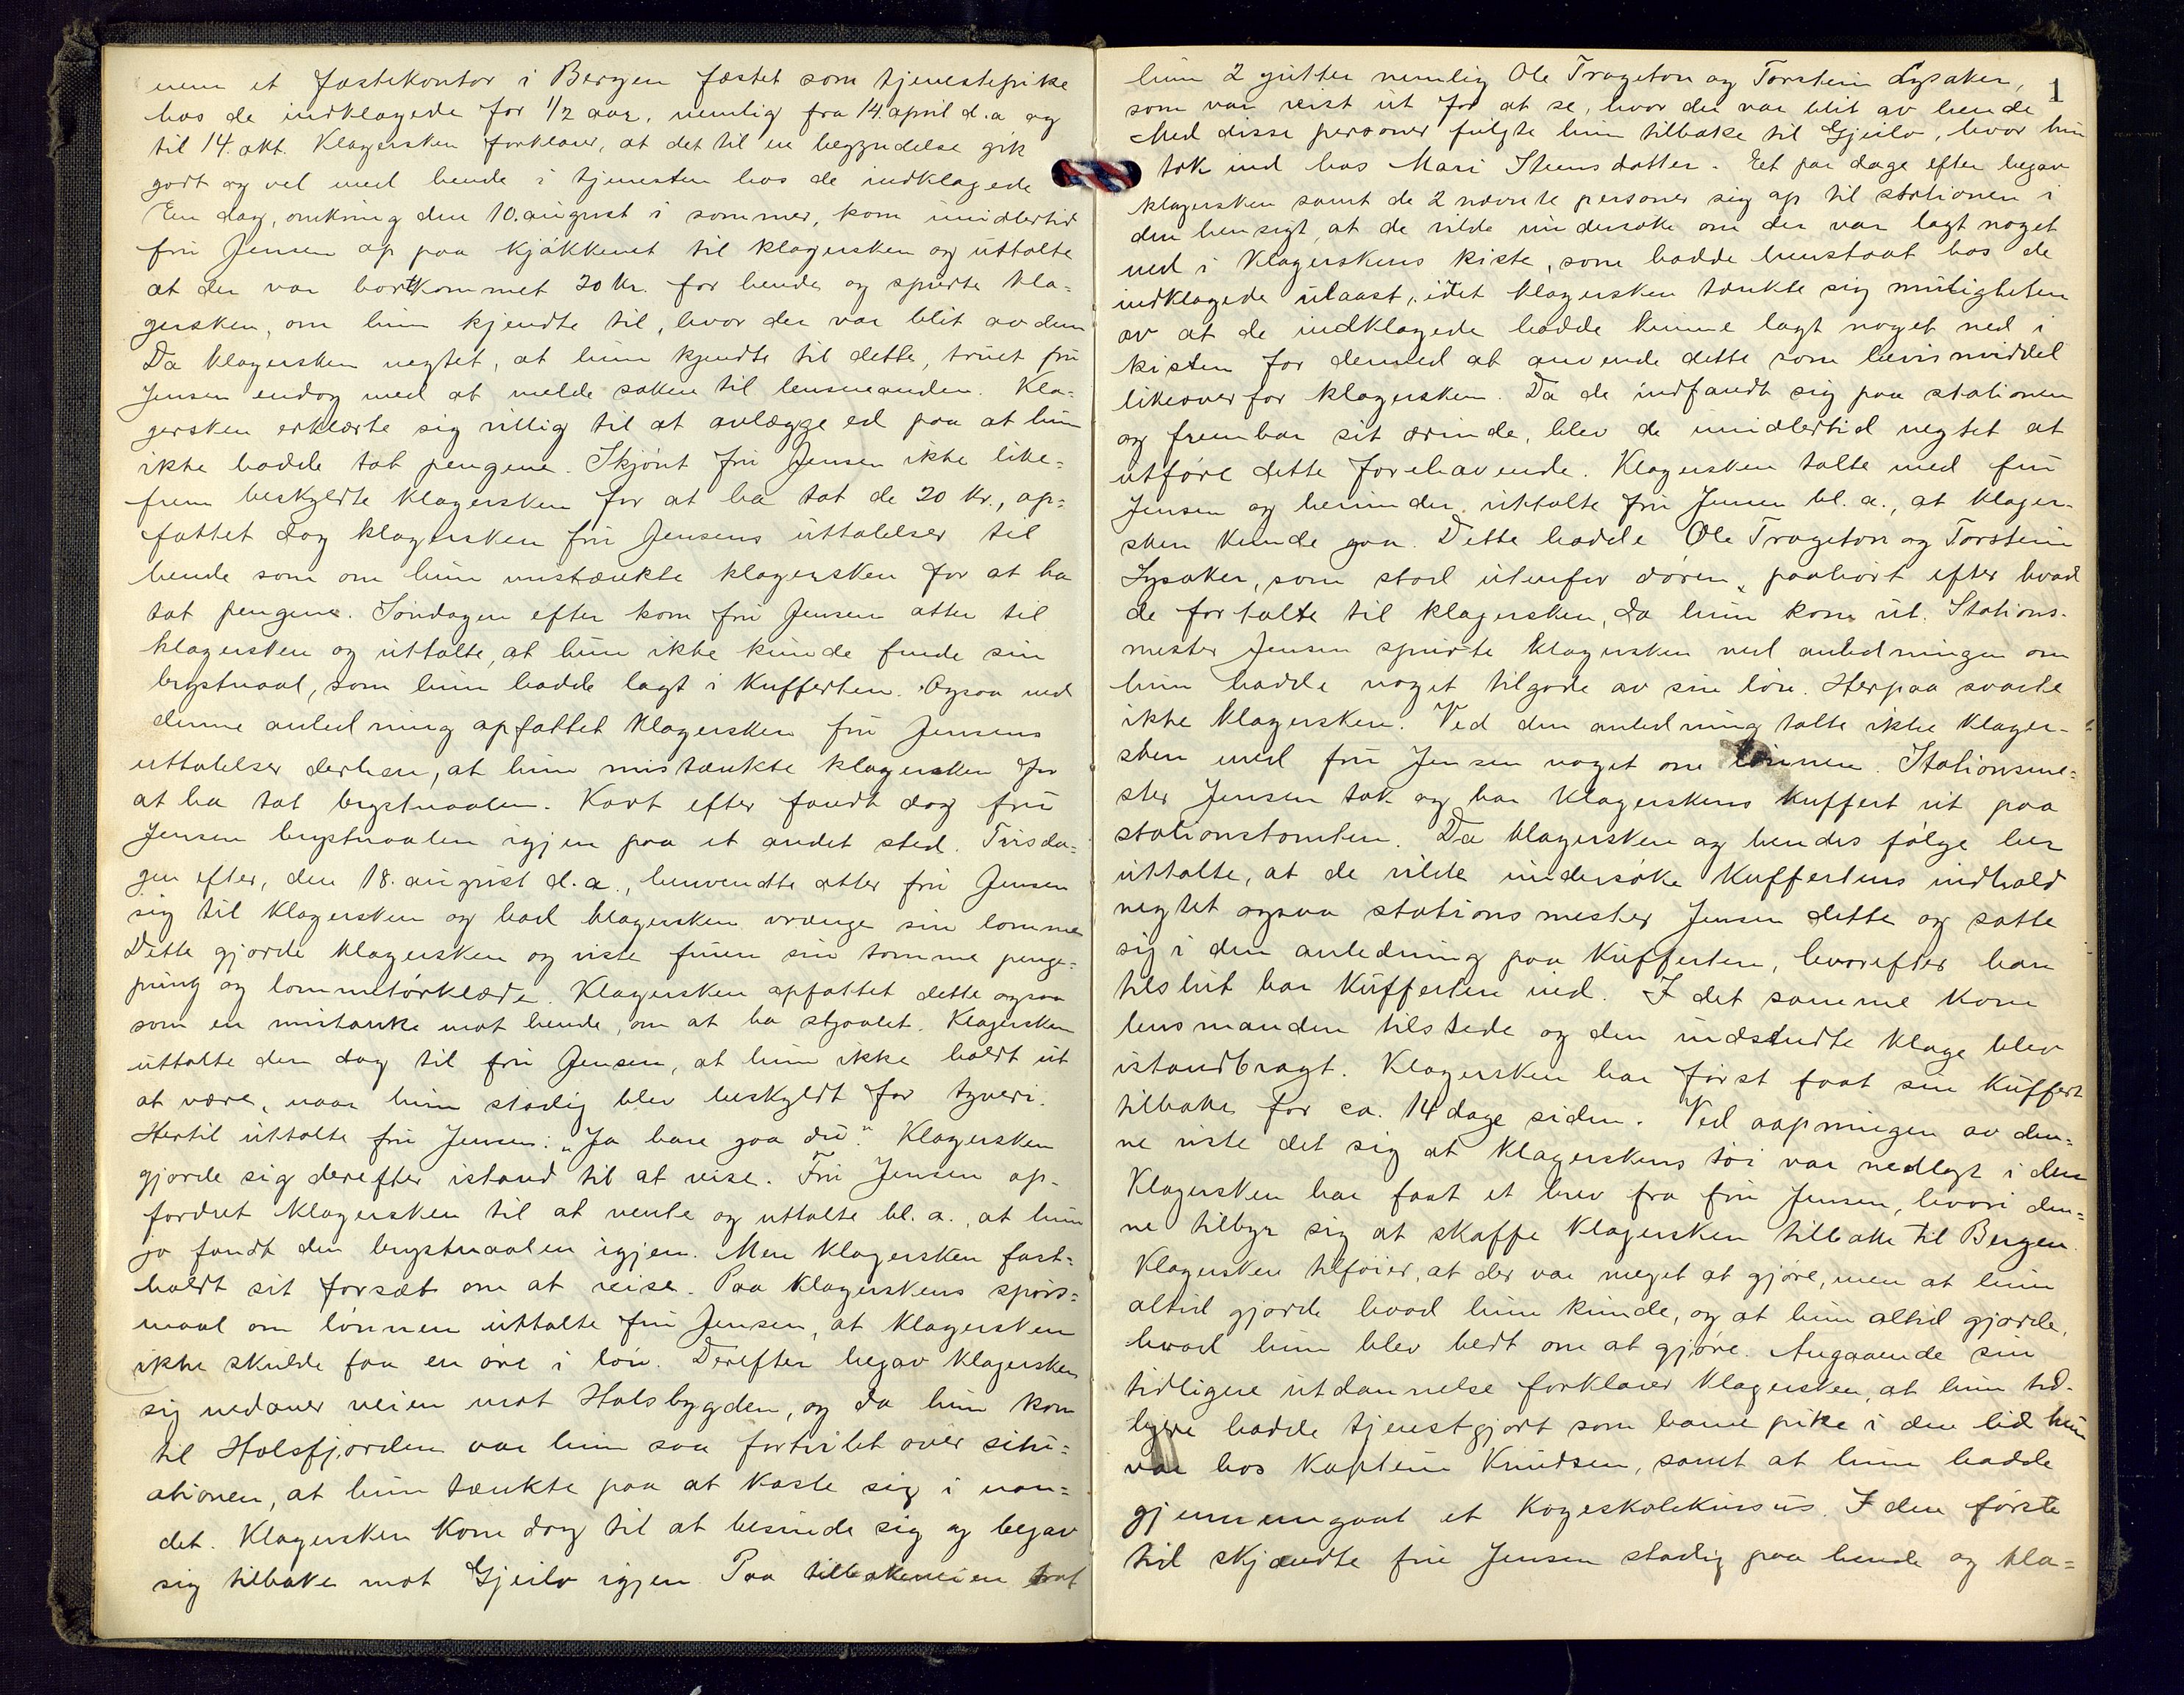 nem et fæstekontor i Bergen fæstet som tjenestepike
hos de indklagede for 1/2 aar, nemlig fra 14. april d.a og
til 14. okt. Klagersken forklarer, at det til en begyndelse gik
godt og vel med hende i tjenesten hos de indklagede
En dag, omkring den 10. august i sommer, kom imidlertid
fru Jensen op paa kjøkkenet til klagersken og uttalte
at der var bortkommet 20 kr. for hende og spurte kla-
gersken, om hun kjendte til, hvor der var blit av dem
Da klagersken negtet, at hun kjendte til dette, truet fru
Jensen endog med at melde saken til lensmanden. Kla-
gersken erklærte sig villig til at avlægge ed paa at hun
ikke hadde tat pengene. Skjønt fru Jensen ikke like-
frem beskyldte klagersken for at ha tat de 20 kr., op-
fattet dog klagersken fru Jensens uttalelser til
hende som om hun mistænkte klagersken for at ha
tat pengene. Søndagen efter kom fru Jensen atter til
klagersken og uttalte, at hun ikke kunde finde sin
brystnaal, som hun hadde lagt i kufferten. Ogsaa ved
denne anledning opfattet klagersken fru Jensens
uttalelser derhen, at hun mistænkte klagersken for
at ha tat brystnaalen. Kort efter fandt dog fru
Jensen brystnaalen igjen paa et andet sted. Tirsda-
gen efter, den 18. august d.a., henvendte atter fru Jensen
sig til klagersken og bad klagersken vrænge sin lomme
Dette gjorde klagersken og viste fruen sin tomme penge-
pung og lommetørklæde. Klagersken opfattet dette ogsaa
som en mistanke mot hende, om at ha stjaalet. Klagersken
uttalte den dag til fru Jensen, at hun ikke holdt ut
at være, naar hun stadig blev beskyldt for tyveri.
Hertil uttalte fru Jensen: "Ja bare gaa du". Klagersken
gjorde sig derefter istand til at reise. Fru Jensen op-
fordret klagersken til at vente og uttalte bl.a., at hun
jo fandt den brystnaalen igjen. Men klagersken fast-
holdt sit forsæt om at reise. Paa klagerskens spørs-
maal om lønnen uttalte fru Jensen, at klagersken
ikke skulde faa en øre i løn. Derefter begav klagersken
sig nedover veien mot Holsbygden, og da hun kom
til Holsfjorden var hun saa fortvilet over situ-
ationen, at hun tænkte paa at kaste sig i van-
det. Klagersken kom dog til at besinde sig og begav
sig tilbake mot Gjeilo igjen. Paa tilbakeveien traf
1
hun 2 gutter nemlig Ole Trageton og Torstein Lysaker,
som var reist ut for at se, hvor der var blit av hende
Med disse personer fulgte hun tilbake til Gjeilo, hvor hun
tok ind hos Mari Steensdatter. Et par dage efter begav
klagersken samt de 2 nævnte personer sig op til stationen i
den hensigt, at de vilde undersøke om der var lagt noget
ned i klagerskens kiste, som hadde henstaat hos de
indklagede ulaast, idet klagersken tænkte sig muligheten
av at de indklagede hadde kunne lagt noget ned i
kisten for dermed at anvende dette som bevismiddel
likeoverfor klagersken. Da de indfandt sig paa stationen
og frembar sit ærinde, blev de imidlertid negtet at
utføre dette forehavende. Klagersken talte med fru
Jensen og herunder uttalte fru Jensen bl.a., at klager-
sken kunde gaa. Dette hadde Ole Trageton og Torstein
Lysaker, som stod utenfor døren, paahørt efter hvad
de fortalte til klagersken, da hun kom ut. Stations-
mester Jensen spurte klagersken ved anledningen om
hun hadde noget tilgode av sin løn. Herpaa svarte
ikke klagersken. Ved den anledning talte ikke klager-
sken med fru Jensen noget om lønnen. Stationsme-
ster Jensen tok og bar klagerskens kuffert ut paa
stationstomten. Da klagersken og hendes følge her
uttalte, at de vilde undersøke kuffertens indhold
negtet ogsaa stationsmester Jensen dette og satte
sig i den anledning paa kufferten, hvorefter han
tilslut bar kufferten ind. I det samme kom
lensmanden tilstede og den indsendte klage blev
istandbragt. Klagersken har først faat sin kuffert
tilbake for ca. 14 dage siden. Ved aapningen av den-
ne viste det sig at klagerskens tøi var nedlagt i den
Klagersken har faat et brev fra fru Jensen, hvori den-
ne tilbyr sig at skaffe klagersken tilbake til Bergen.
Klagersken tilføier, at der var meget at gjøre, men at hun
altid gjorde hvad hun kunde, og at hun altid gjorde,
hvad hun blev bedt om at gjøre. Angaaende sin
tidligere utdannelse forklarer klagersken, at hun tid-
ligere hadde tjenestgjort som barnepike i den tid hun
var hos kaptein Knudsen, samt at hun hadde
gjennemgaat et kogeskolekursus. I den første
tid skjændte fru Jensen stadig paa hende og kla-